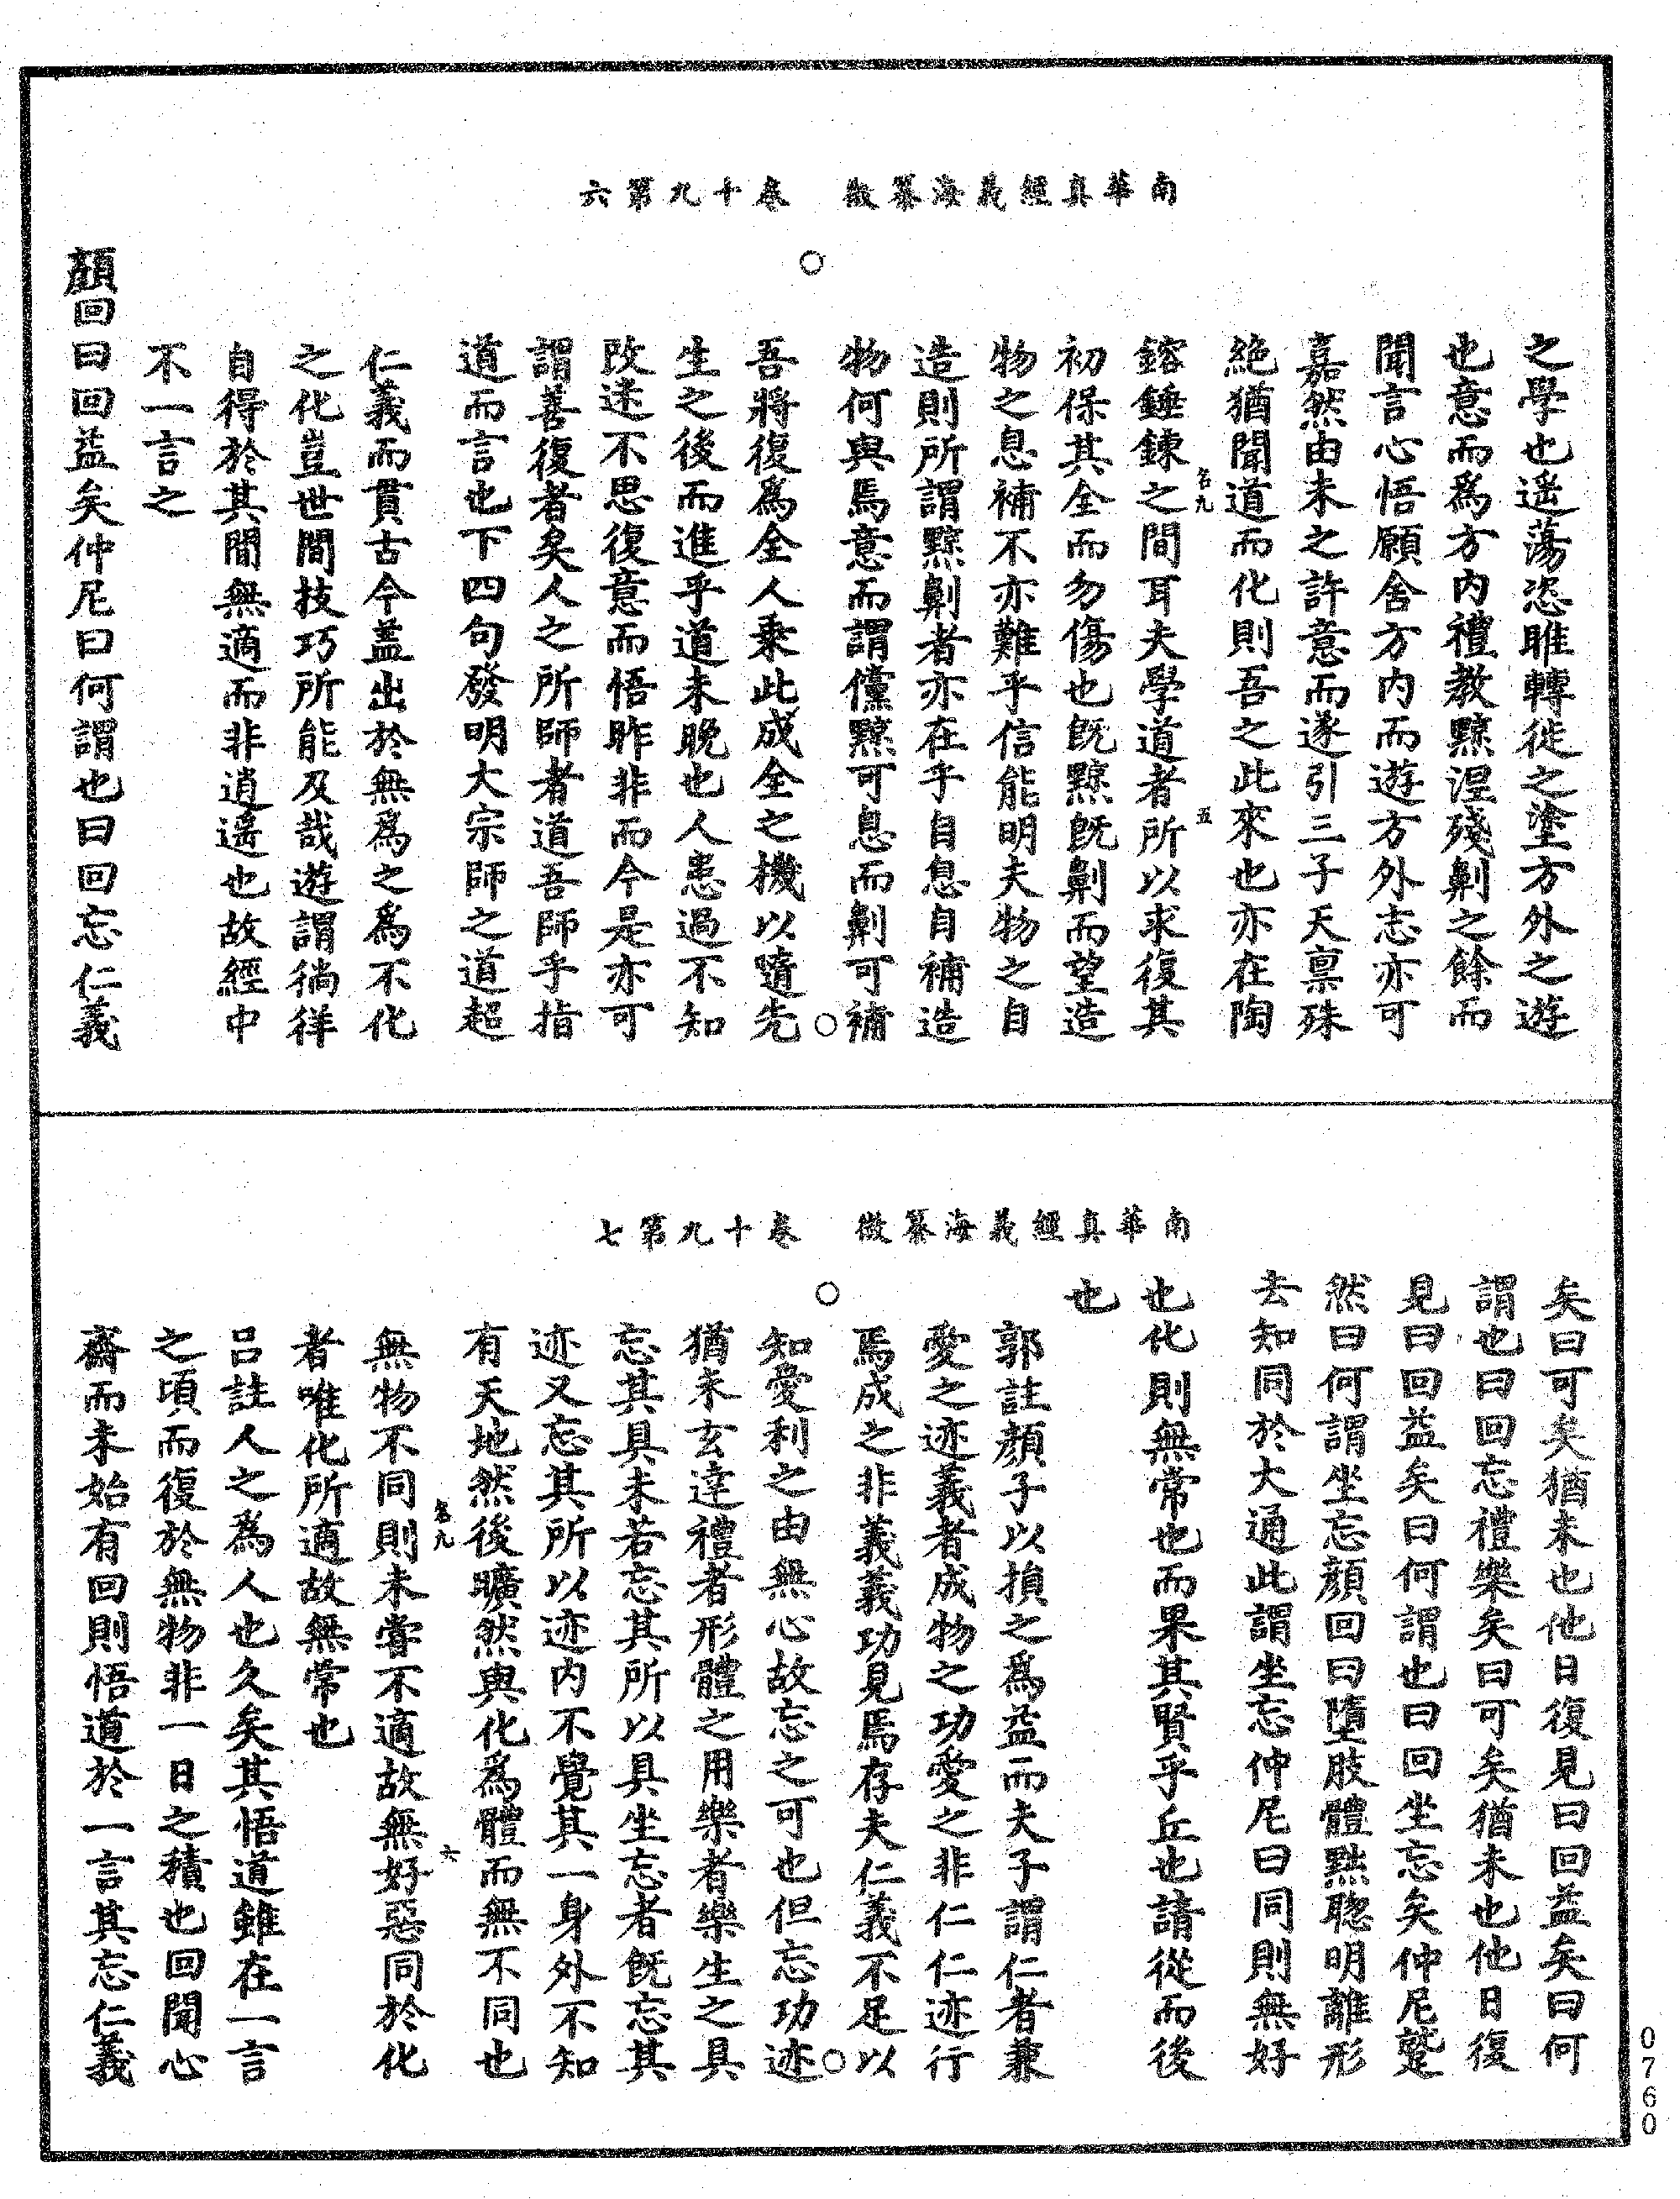 南華真經義海纂微　卷十九第六
之學也遥蕩恣睢轉徙之塗方外之遊
也意而爲方内禮教黥涅殘劓之餘而
聞言心悟願舍方内而遊方外志亦可
嘉然由未之許意而遂引三子天稟殊
絶猶聞道而化則吾之此來也亦在陶
名九　五
鎔錘鍊之間耳夫學道者所以求復其
初保其全而勿傷也旣黥旣劓而望造
物之息補不亦難乎信能明夫物之自
造則所謂黥劓者亦在乎自息自補造
物何與焉意而謂儻黥可息而劓可補
吾將復爲全人乘此成全之機以隨先
生之後而進乎道未晚也人患過不知
改迷不思復意而悟昨非而今是亦可
謂善復者矣人之所師者道吾師乎指
道而言也下四句發明大宗師之道超
仁義而貫古今盖出於無爲之爲不化
之化豈世間技巧所能及哉遊謂徜徉
自得於其間無適而非逍遥也故經中
不一言之
顔回曰回益矣仲尼曰何謂也曰回忘仁義
南華真經義海纂微　卷十九第七
矣曰可矣猶未也他日復見曰回益矣曰何
謂也曰回忘禮樂矣曰可矣猶未也他日復
見曰回益矣曰何謂也曰回坐忘矣仲尼蹵
然曰何謂坐忘顔回曰墮肢體黜聦明離形
去知同於大通此謂坐忘仲尼曰同則無好
也化則無常也而果其賢乎丘也請從而後
也
郭註顔子以損之爲益而夫子謂仁者兼
愛之迹義者成物之功愛之非仁仁迹行
焉成之非義義功見焉存夫仁義不足以
知愛利之由無心故忘之可也但忘功迹
猶未玄達禮者形體之用樂者樂生之具
忘其具未若忘其所以具坐忘者旣忘其
迹又忘其所以迹内不覺其一身外不知
有天地然後曠然與化爲體而無不同也
名九　六
無物不同則未甞不適故無好惡同於化
者唯化所適故無常也
吕註人之為人也久矣其悟道雖在一言
之頃而復於無物非一日之積也回聞心
齋而未始有回則悟道於一言其忘仁義
0760